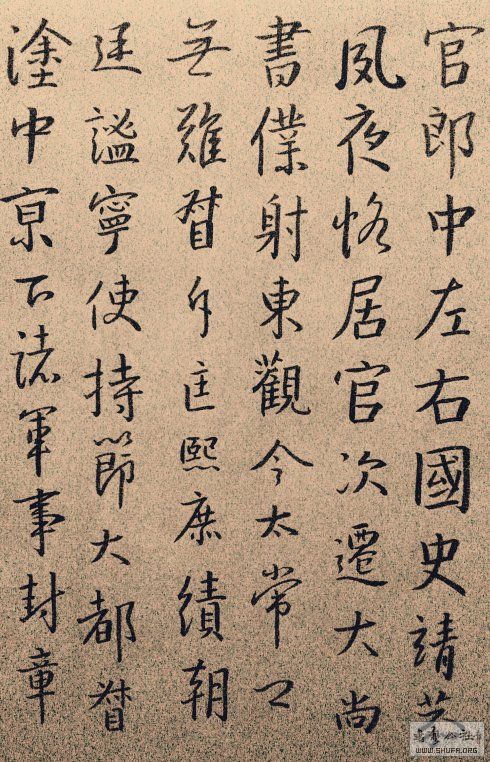 官郎中左右國史靖
夙夜恪居官次遷大尚
書僕射東觀今太常
無雖督匡熙庶績朝
廷謐寧使持節大都督
塗中京下諸軍事封章
WWW.SHUFA.ORG